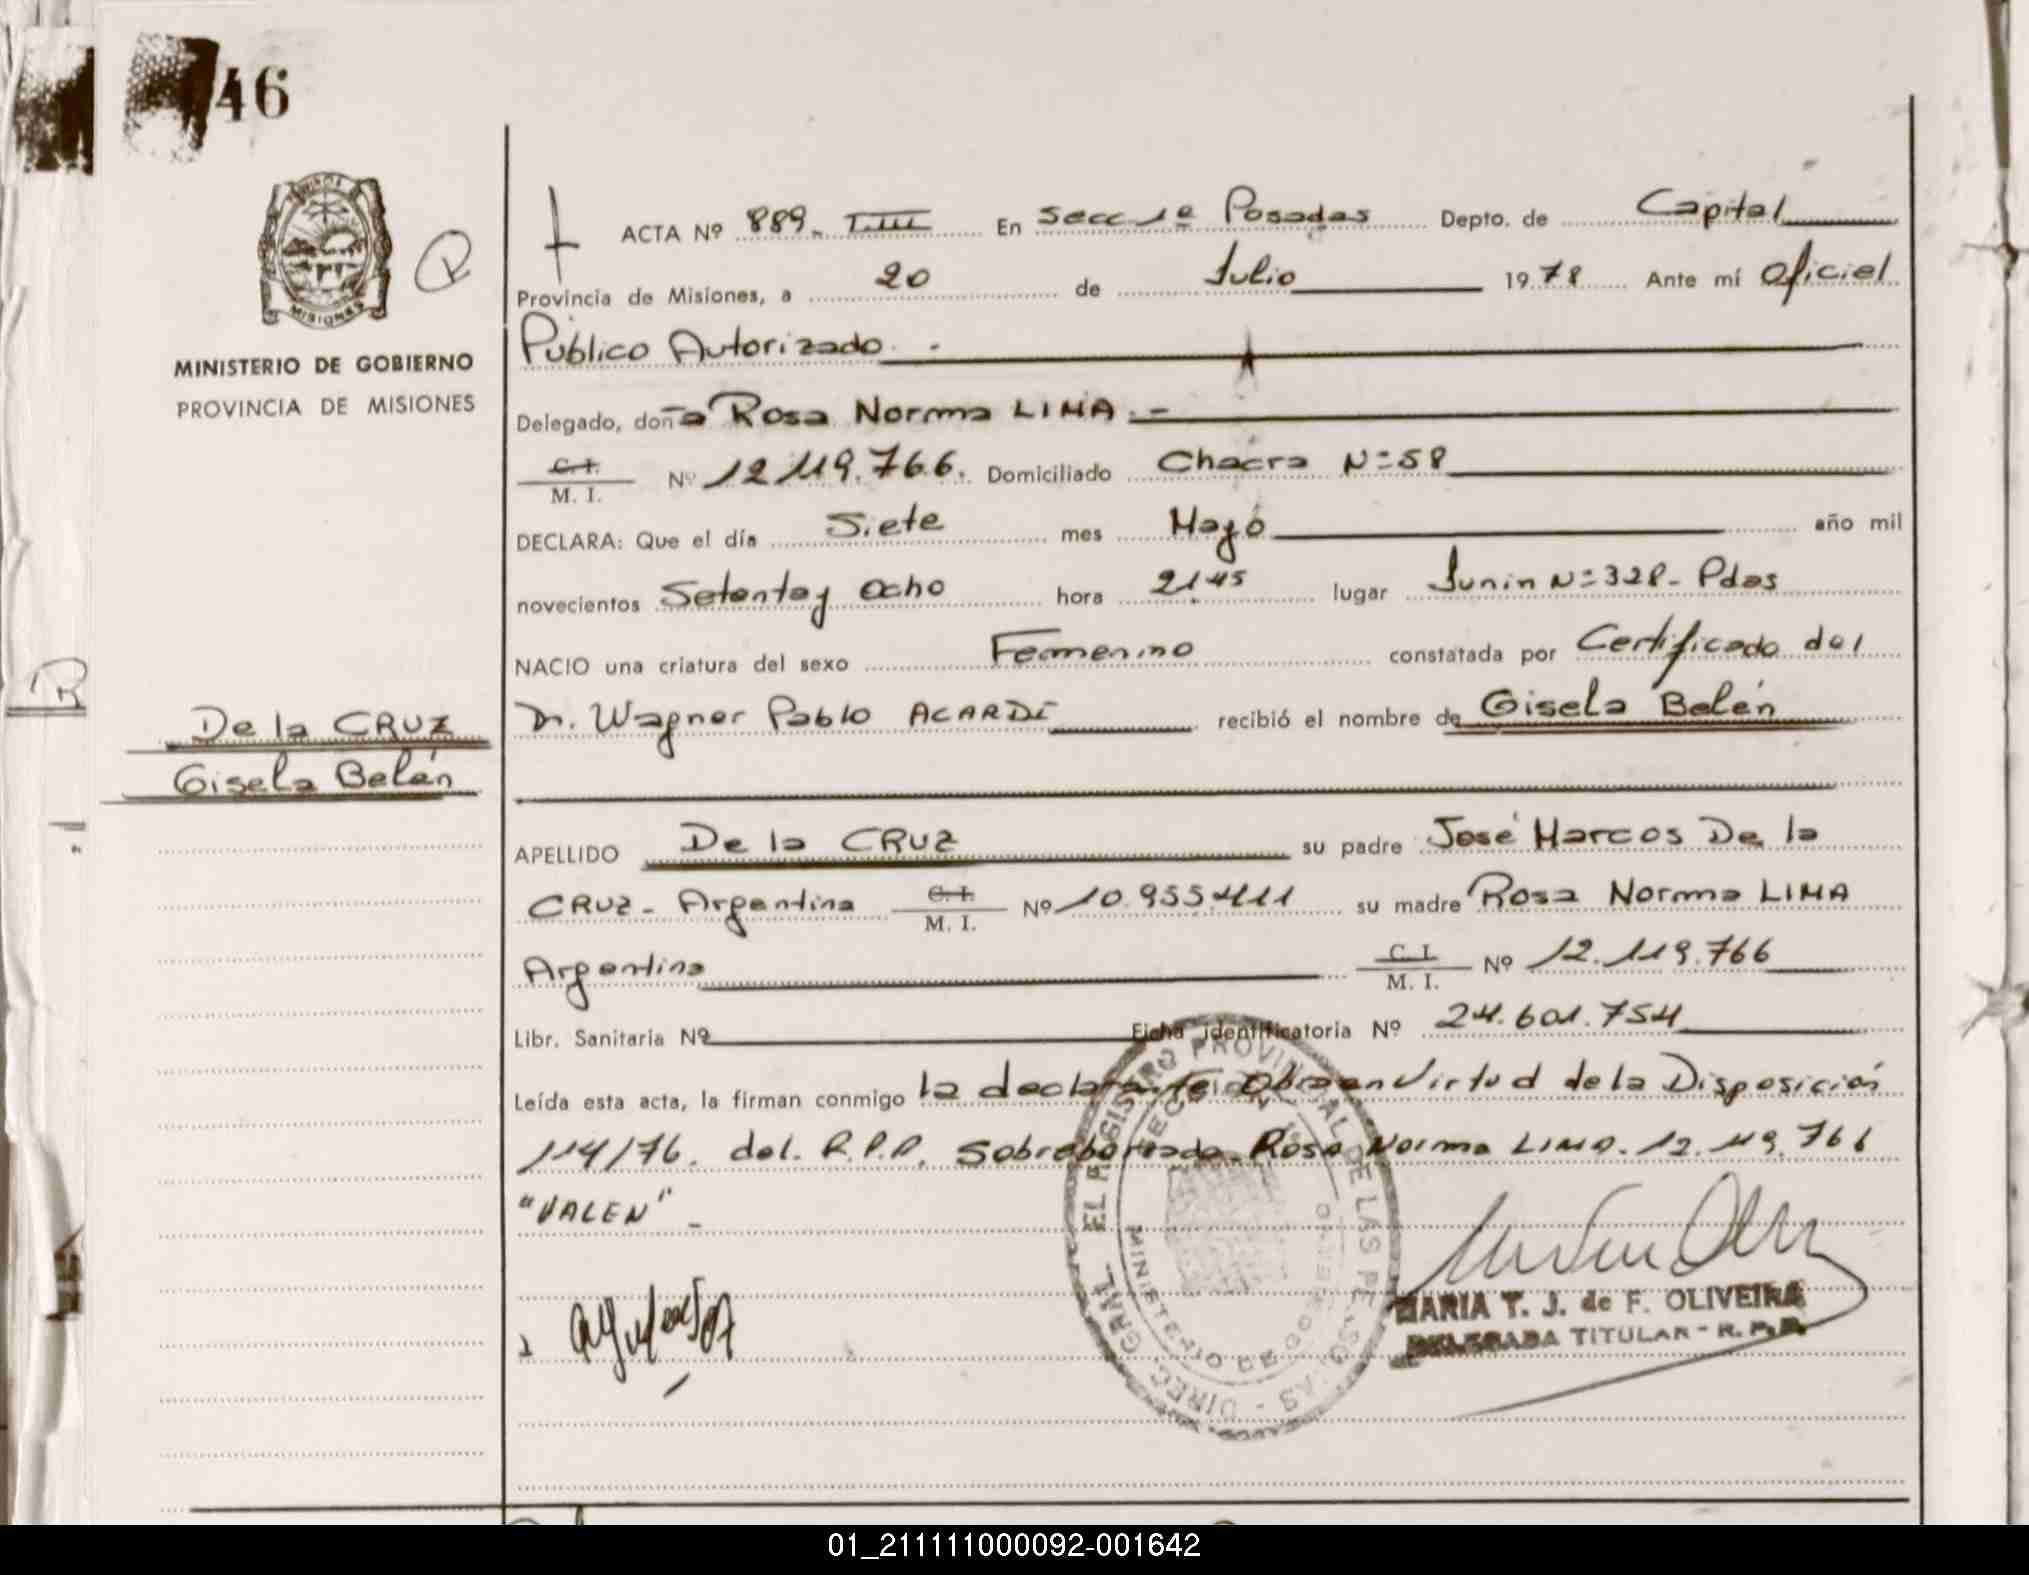 46
MISIONES
MINISTERIO DE GOBIERNO
PROVINCIA DE MISIONES
R
De la CRUZ
Gisela Belén
ACTA Nº 889. T.III En Secc 1ª Posadas Depto. de Capital
Provincia de Misiones, a 20 de Julio 1978 Ante mí Oficiel
Público Autorizado. -
Delegado, doña Rosa Norma LIMA. -
C. I.
M. I. Nº 12 119.766. Domiciliado Chacra Nº 58
DECLARA: Que el día Siete mes Mayo año mil
novecientos Setenta y Ocho hora 21.45 lugar Junin Nº 328- Pdas
NACIO una criatura del sexo Femenino constatada por Certificado del
Dr. Wagner Pablo ACARDI recibió el nombre de Gisela Belén
APELLIDO De la CRUZ su padre José Marcos De la
CRUZ- Argentina C. I. M. I. Nº 10.955.411 su madre Rosa Norma LIMA
Argentina C. I. M. I. Nº 12.119.766
Libr. Sanitaria Nº Ficha identificatoria Nº 24.601.754
Leída esta acta, la firman conmigo la declarante Obra en Virtud de la Disposición
114/76. del. R.P.P. Sobreborrado Rosa Norma LIMA. 12.119.766
"VALEN" -
DIREC. GRAL. EL REGISTRO PROVINCIAL DE LAS PERSONAS
MINISTERIO DE GOBIERNO
MARIA T. J. de F. OLIVEIRA
DELEGADA TITULAR - R. P. P.
01_211111000092-001642